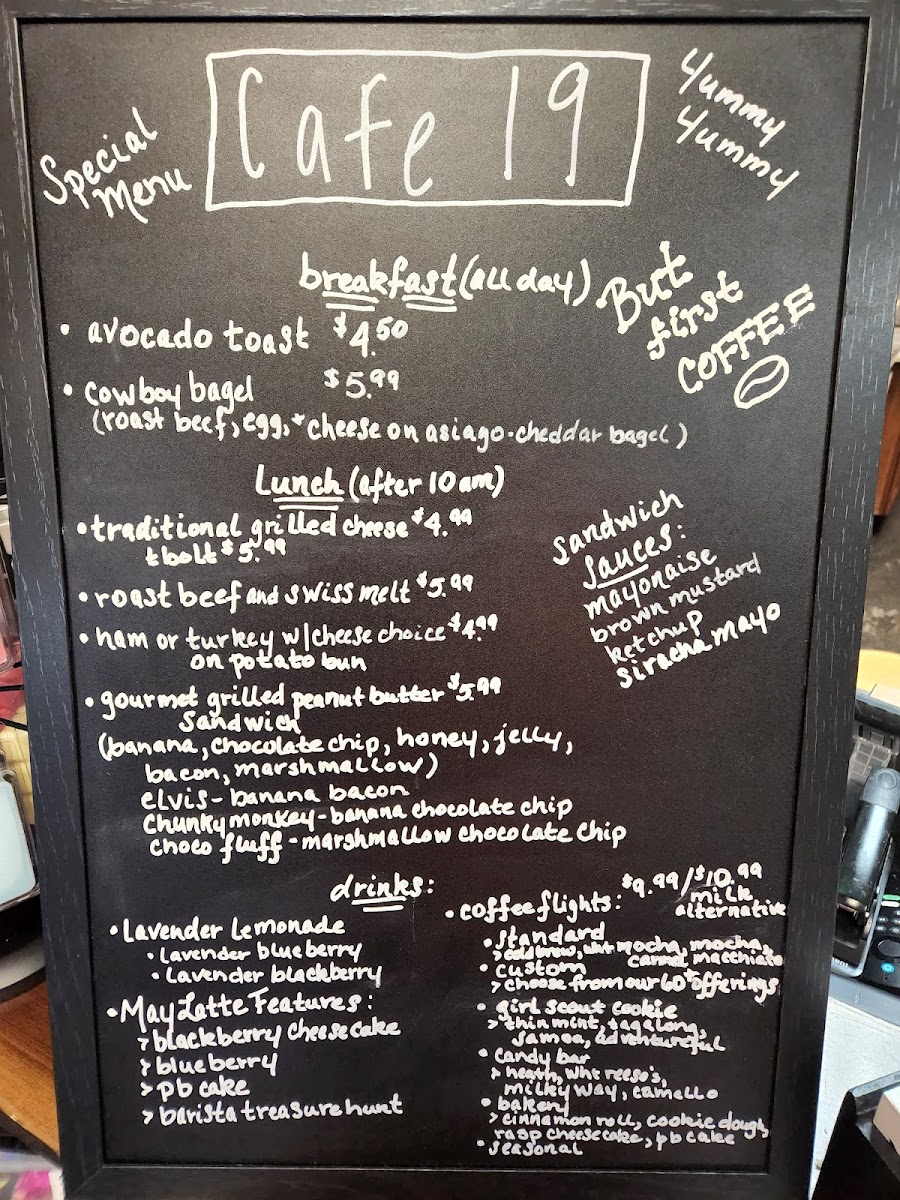 Special
Menu
Cafe 19
Yummy
Yummy
breakfast (all day)
But
first
COFFEE
• avocado toast $4.50
• cowboy bagel $5.99
(roast beef, egg, + cheese on asiago-cheddar bagel)
Lunch (after 10am)
• traditional grilled cheese $4.99
tbolt $5.99
• roast beef and swiss melt $5.99
• ham or turkey w/cheese choice $4.99
on potato bun
• gourmet grilled peanut butter $5.99
sandwich
(banana, chocolate chip, honey, jelly,
bacon, marshmallow)
elvis - banana bacon
chunky monkey - banana chocolate chip
choco fluff - marshmallow chocolate chip
Sandwich
Sauces:
mayonaise
brown mustard
ketchup
siracha mayo
drinks:
• Lavender Lemonade
• lavender blueberry
• Lavender blackberry
• May Latte Features:
> blackberry cheesecake
> blueberry
> pb cake
> barista treasure hunt
• coffee flights: $9.99/$10.99
milk
alternative
• standard
> cold brew, wht mocha, mocha,
carmel macchiato
• custom
> choose from our 60+ offerings
• girl scout cookie
> thin mint, tagalong,
samoa, adventureful
• candy bar
> heath, wht reese's,
milky way, camello
• bakery
> cinnamon roll, cookie dough,
rasp cheesecake, pb cake
• seasonal